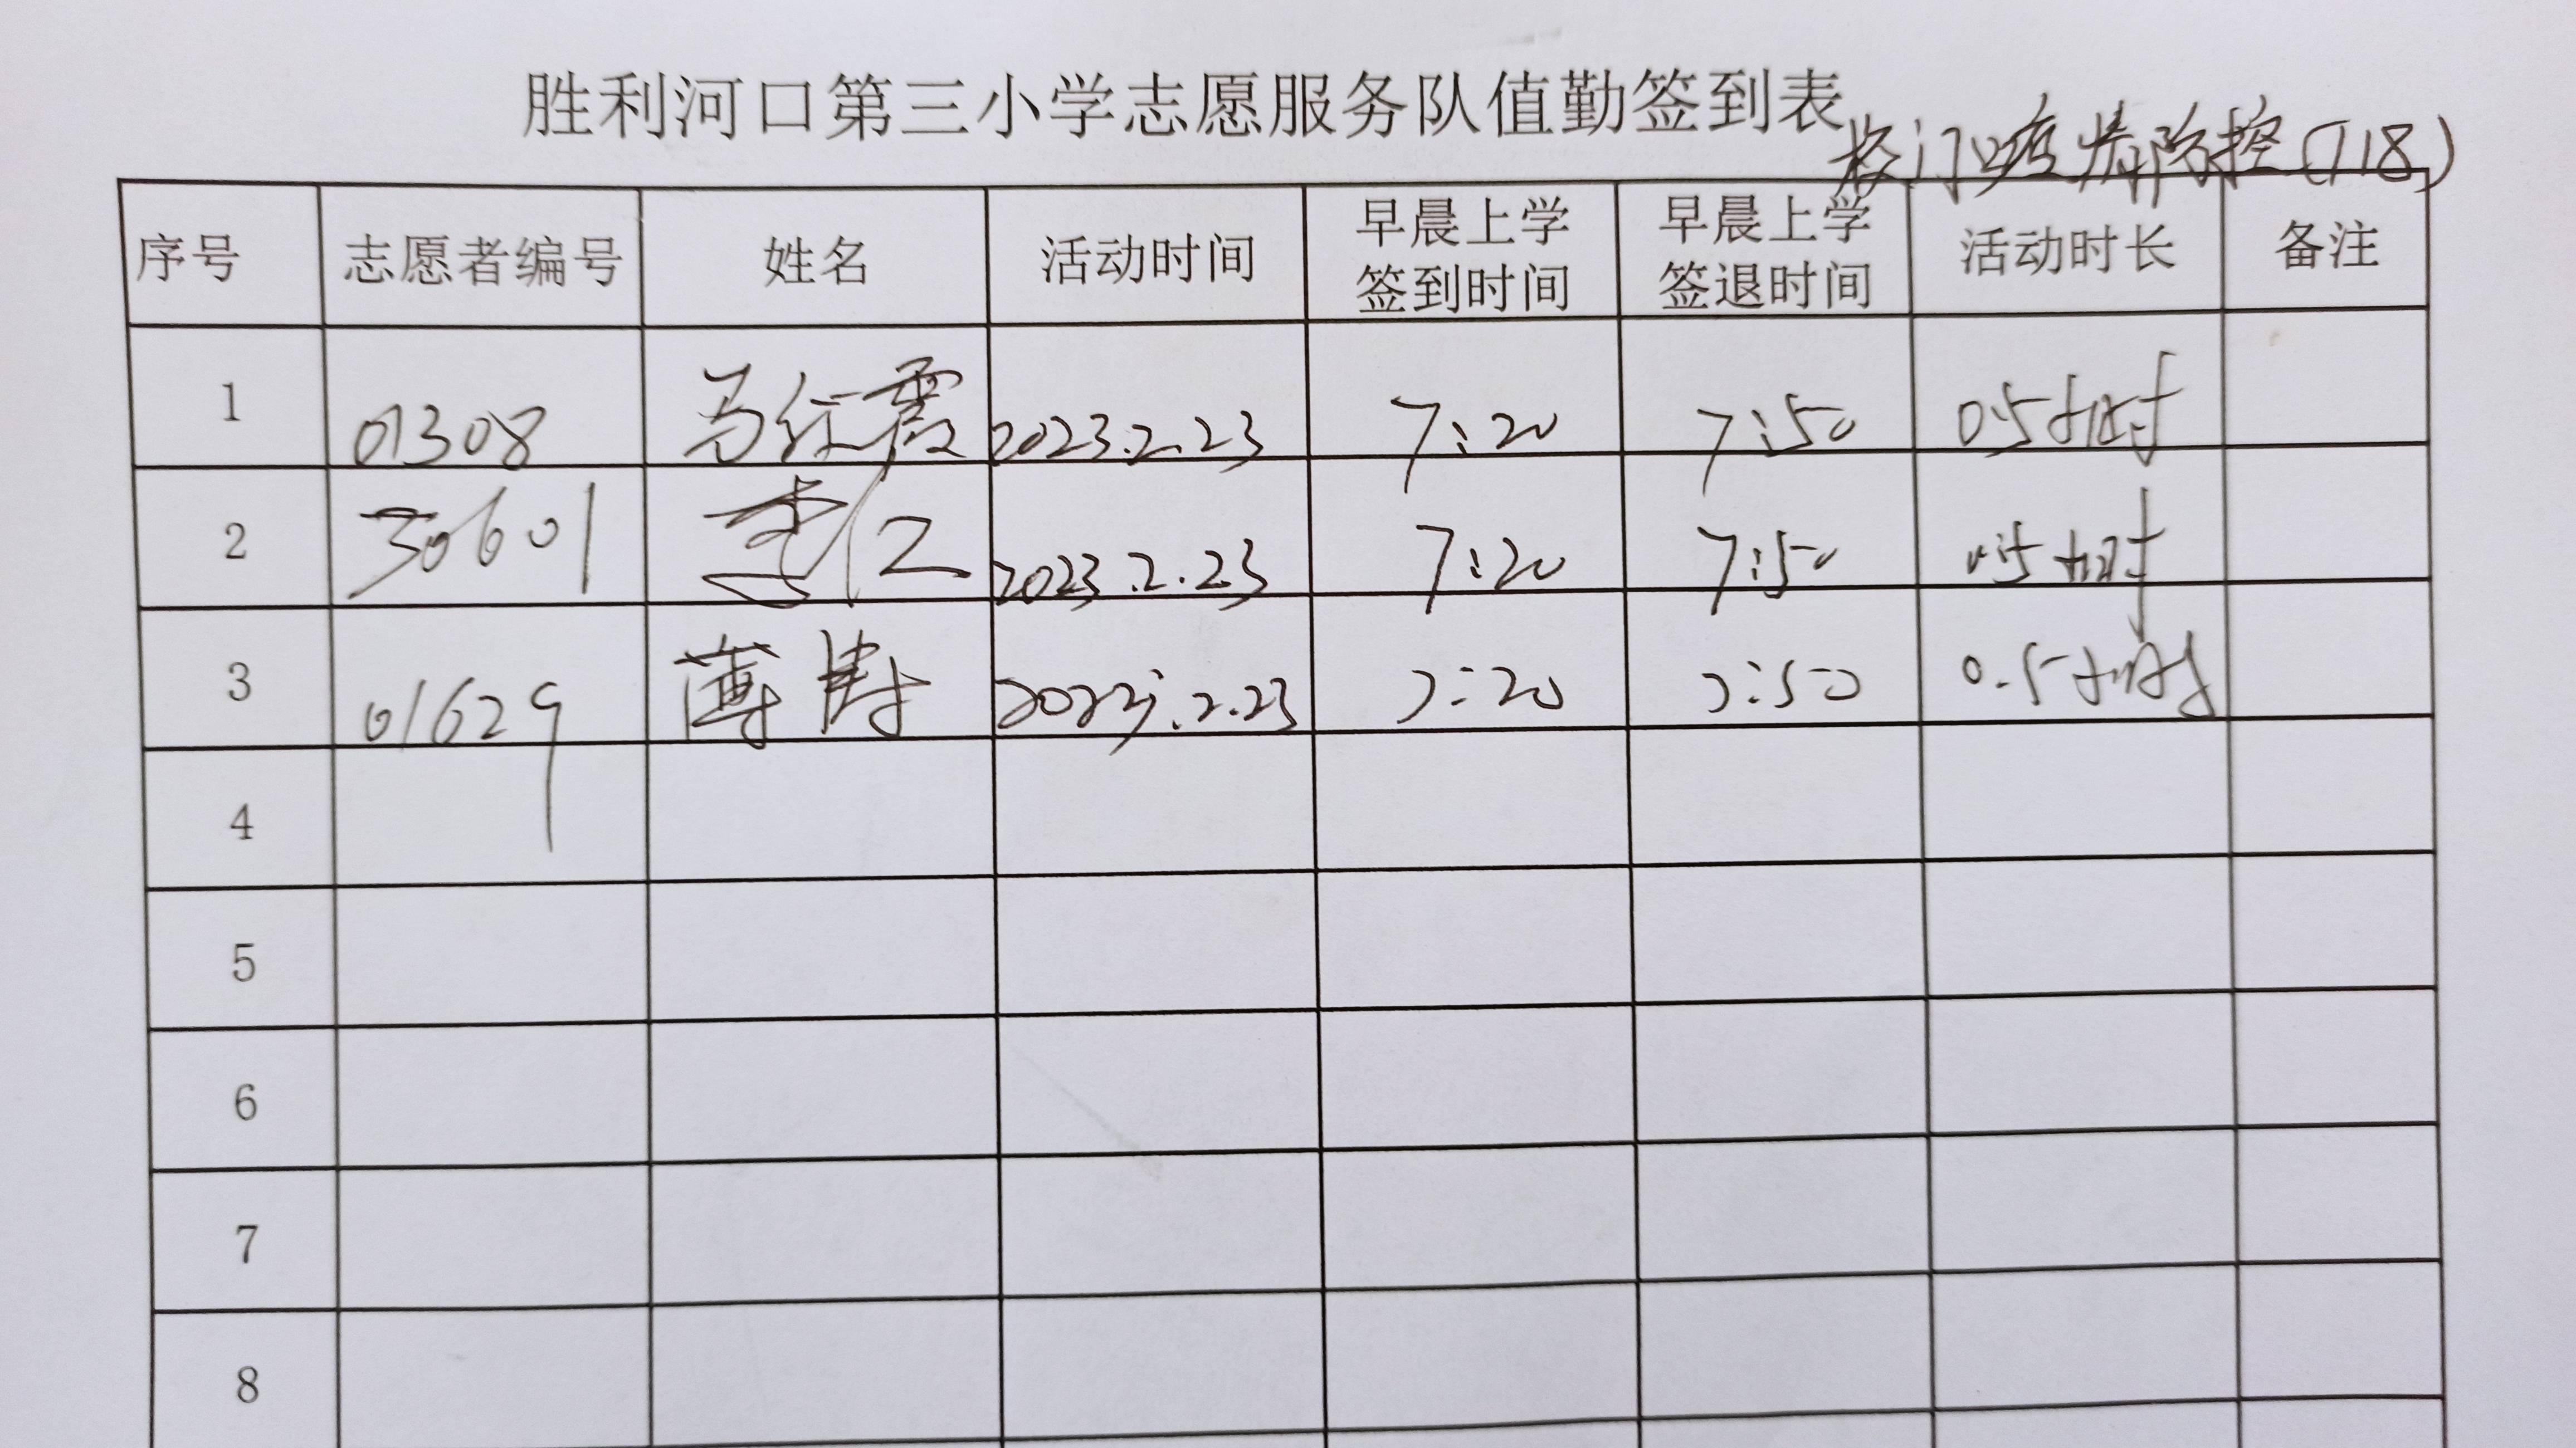 胜利河口第三小学志愿服务队值勤签到表
校门口疫情防控(118)
序号 志愿者编号 姓名 活动时间 早晨上学签到时间 早晨上学签退时间 活动时长 备注
1 01308 马红霞 2023.2.23 7:20 7:50 0.5小时
2 30601 2023.2.23 7:20 7:50 0.5小时
3 01629 薄涛 2023.2.23 7:20 7:50 0.5小时
4
5
6
7
8